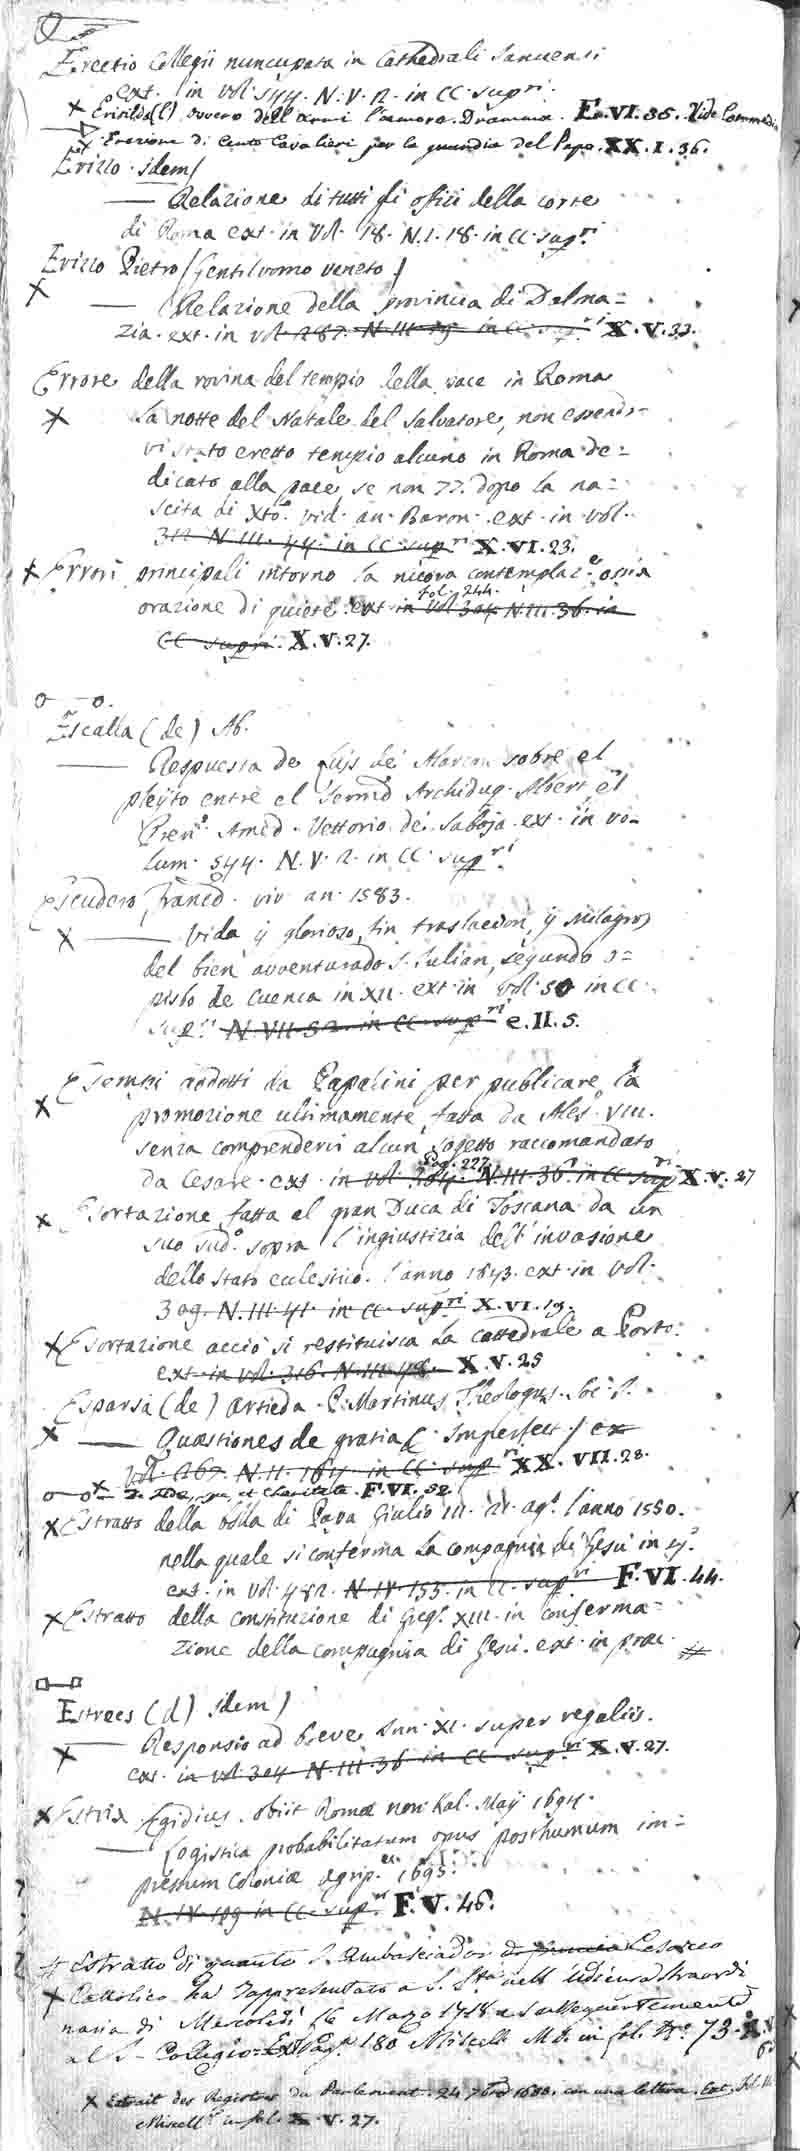 Erectio Collegii nuncupata in Cathedrali Januensi
ext. in vol. 544. N. V. 2. in CC. supri.
Erisilda (l') ovvero dell'armi l'amore. Dramma. F. VI. 35. Vide Commedia
Erezione di Cento Cavalieri per la guardia del Papa. XX. I. 36.
Erizzo idem/
— Relazione di tutti gli offici della corte
di Roma ext. in Vol. 18. N. I. 18. in CC. supri
Erizzo Pietro/Gentiluomo veneto/
— Relazione della provincia di Dalma=
zia. ext. in vol. 287. N. III. 19 in CC supri X. V. 33.
Errore della rovina del tempio della pace in Roma
la notte del Natale del Salvatore, non essendo=
vi stato eretto tempio alcuno in Roma de=
dicato alla pace se non 77. dopo la na=
scita di Xto. vid. an. Baron. ext. in vol.
312 N. III. 44. in CC. supri X. VI. 23.
Errori principali intorno la nuova contemplaz.e ossia
orazione di quiete. ext in vol 304 N. III. 36. in
fol. 244.
CC supri. X. V. 27.
Escalla (de) Ab.
— Respuesta de Luis de sobre el
pleyto entre el Sermo Archiduq. Albert el
Amed. Vettorio de Saboja ext. in vo=
lum. 544. N. V. 2. in CC. supri
Escudero, Franco. viv. an. 1583.
— Vida y glorioso fin traslacion, y Milagros
del bien avventurado S. Julian, segundo o=
pisbo de Cuenca in XII. ext in vol. 50 in CC.
supri N. VII. 52. in CC. supri e. II. 5.
Esempi addotti da Papalini per publicare la
promozione ultimamente fatta da Ales. VIII.
senza comprendervi alcun sogetto raccomandato
da Cesare. ext. in vol. 304. N. III. 36. in CC supri X. V. 27
Pag. 227
Esortazione fatta al gran Duca di Toscana da un
suo sudo. sopra l'ingiustizia dell'invasione
dello stato eclestico. l'anno 1643. ext. in vol.
309. N. III. 41. in CC. supri X. VI. 19.
Esortazione acciò si restituisca la cattedrale a Porto.
ext. in vol. 316. N. III. 48. X. V. 25
Esparsa (de) Artieda. P. Martinus Theologus. Soc. J.
— Quaestiones de gratia (Imperfect.) ex
vol. 267. N. II. 164. in CC supri XX. VII. 28.
De Fide, spe et Charitate. F. VI. 52.
Estratto della bolla di Papa Giulio III. 21. ago. l'anno 1550.
nella quale si conferma la compagnia di Gesù in
ext. in vol. 482. N. IV. 153. in CC. supri F. VI. 44.
Estratto della constituzione di Grego. XIII. in conferma=
zione della compagnia di Gesù. ext. in prae. #
Estrees (d') idem/
— Responsio ad breve Inn. XI. super regaliis.
ext. in vol. 304 N. III. 36 in CC. supri X. V. 27.
Estrix Egidius. obiit Romae non. Kal. Maij 1694.
— Logistica probabilitatum opus posthumum im=
pressum Coloniae Agrip. an. 1695.
N. IV. 109 in CC. supri F. V. 46.
# Estratto di quanto l'Ambasciador di Francia Cesareo
Cattolico ha rappresentato a S. Stà nell'udienza straordi
naria di Mercoledì 16 Marzo 1718 e susseguentemente
al S. Collegio. Ext. Pag.a 180 Miscell. MS. in fol. No. 73. X. V.
Extrait des Registres du Parlement. 24 7bre 1688. con una lettera. Ext. fol.
Miscell. in fol. X. V. 27.